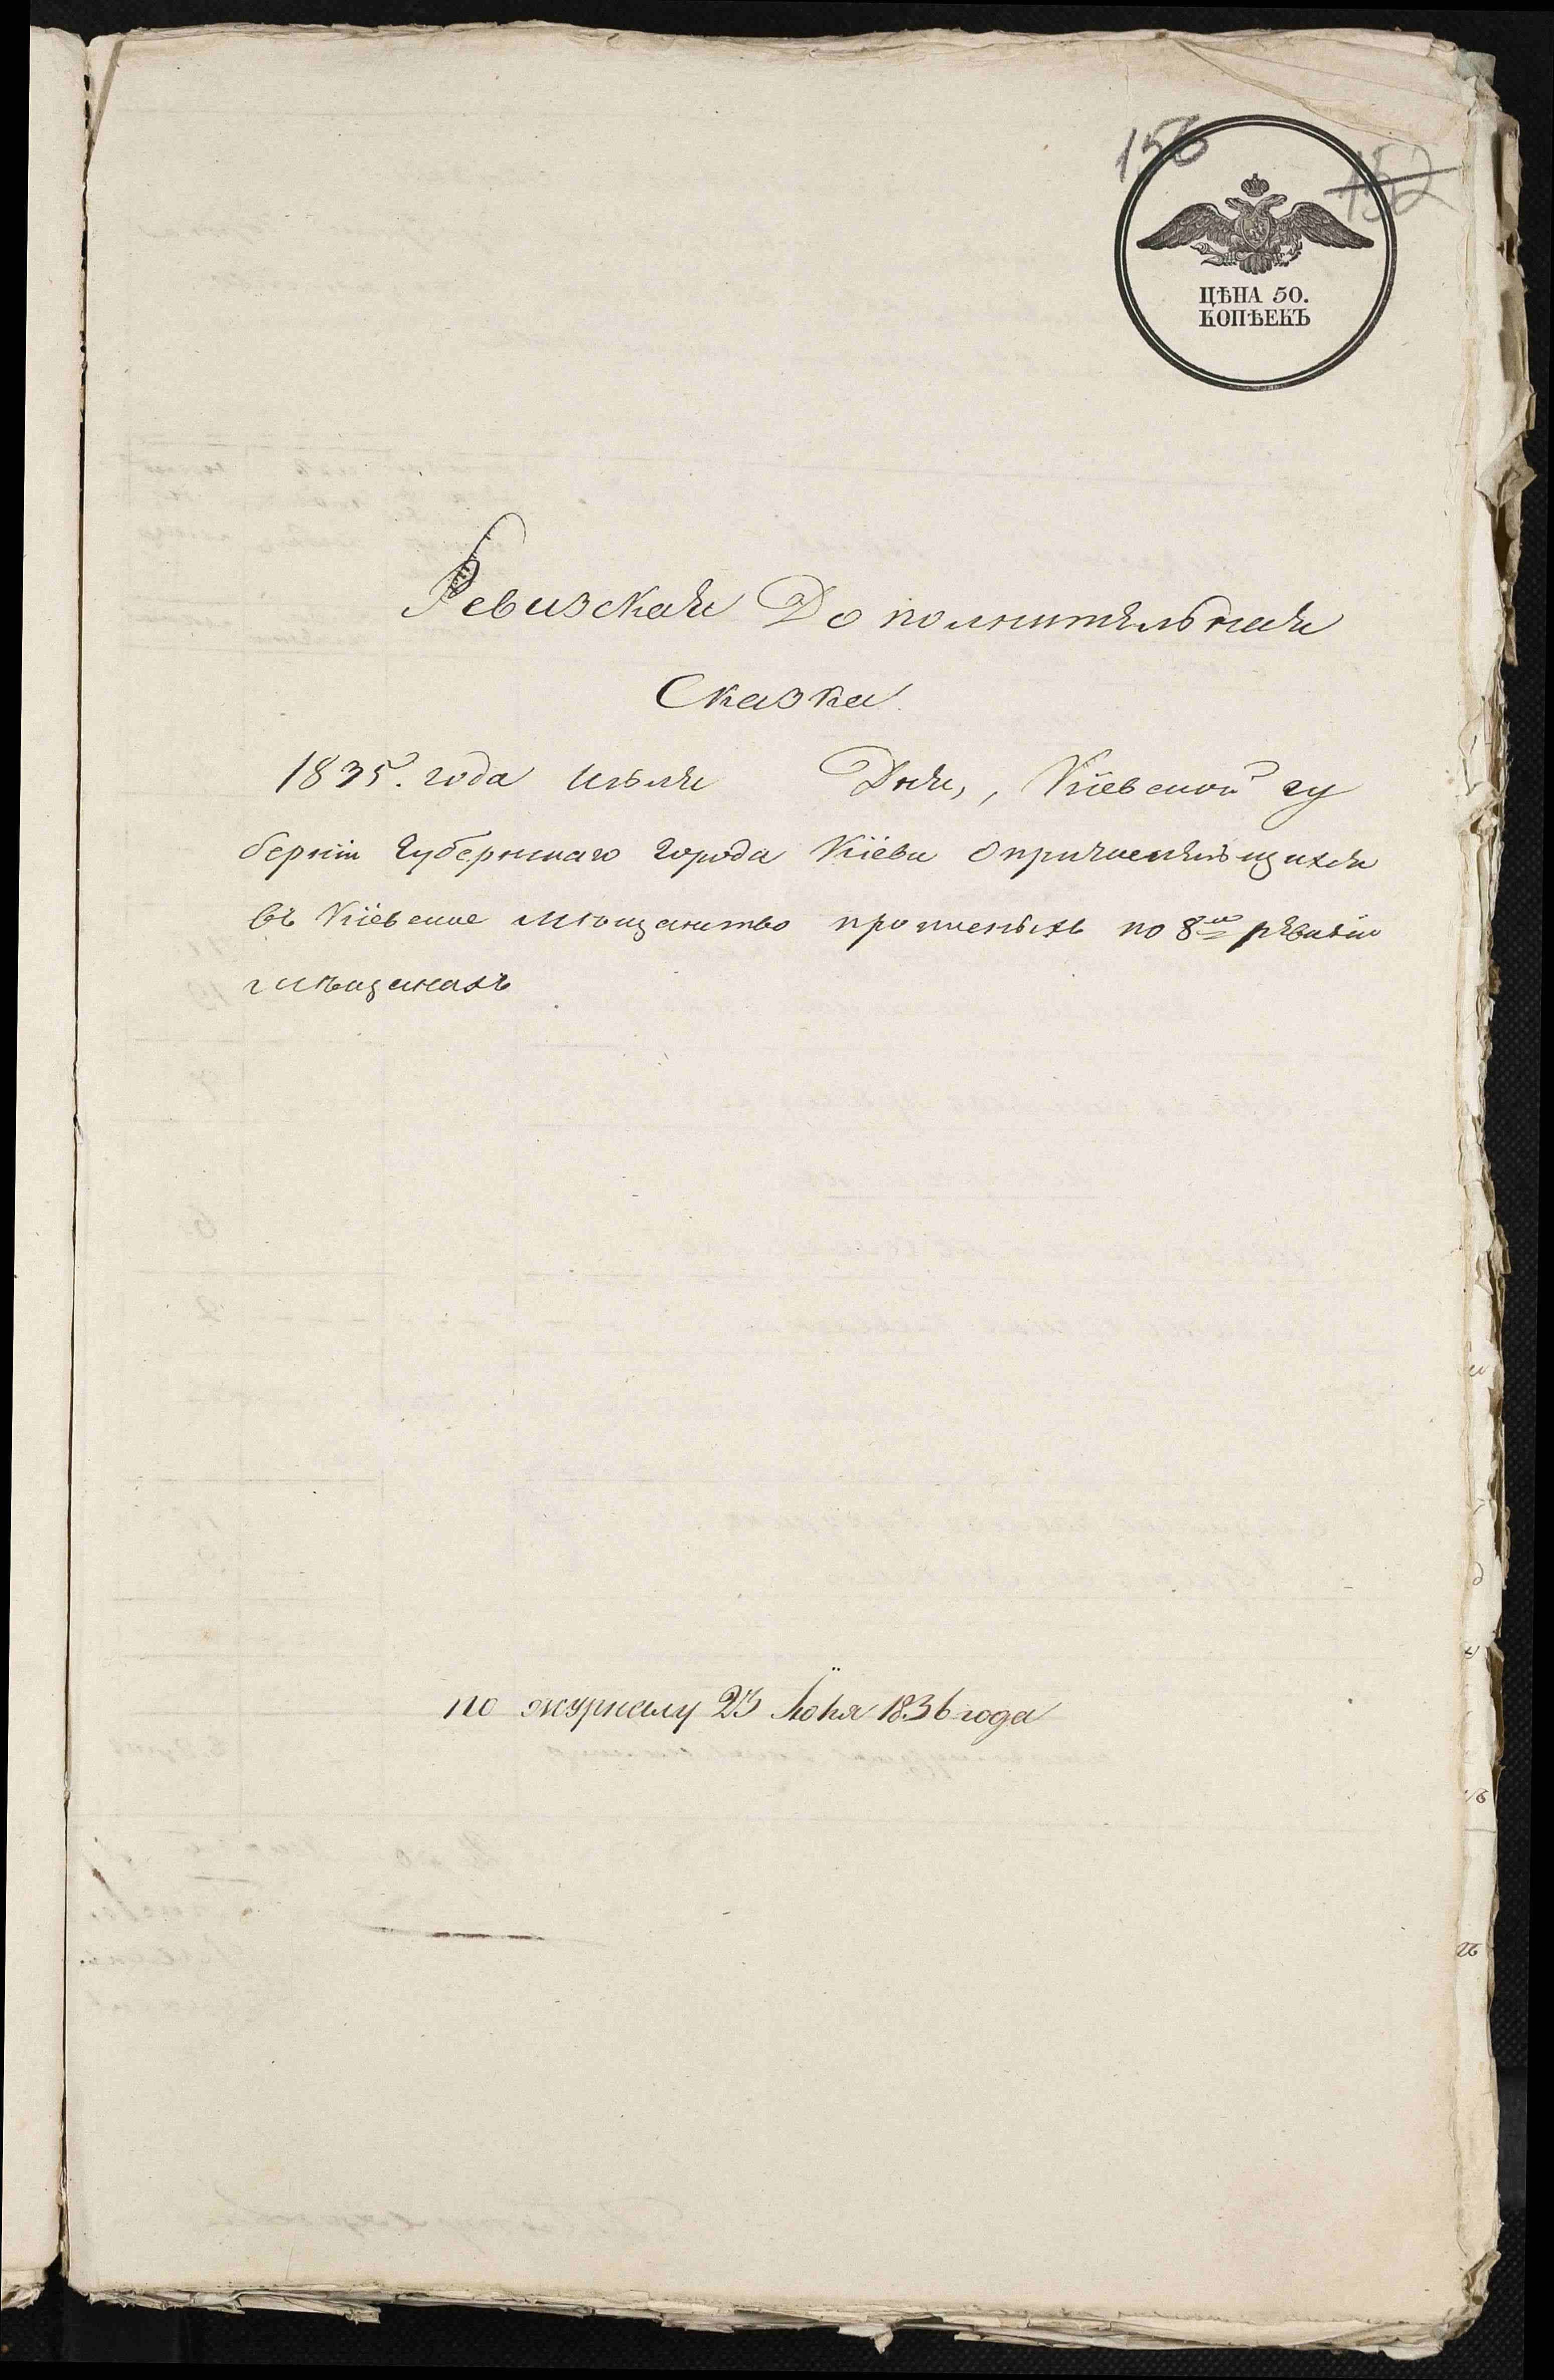 156
152
ЦѢНА 50.
КОПѢЕКЪ
Ревизская Дополнительная
Сказка
1835. года Июля Дня, Кіевской гу
берніи Губернскаго города Кіева о причислившихся
въ Кіевское мѣщанство прописныхъ по 8ю ревизію
мѣщанахъ
по журналу 23 Іюня 1836 года